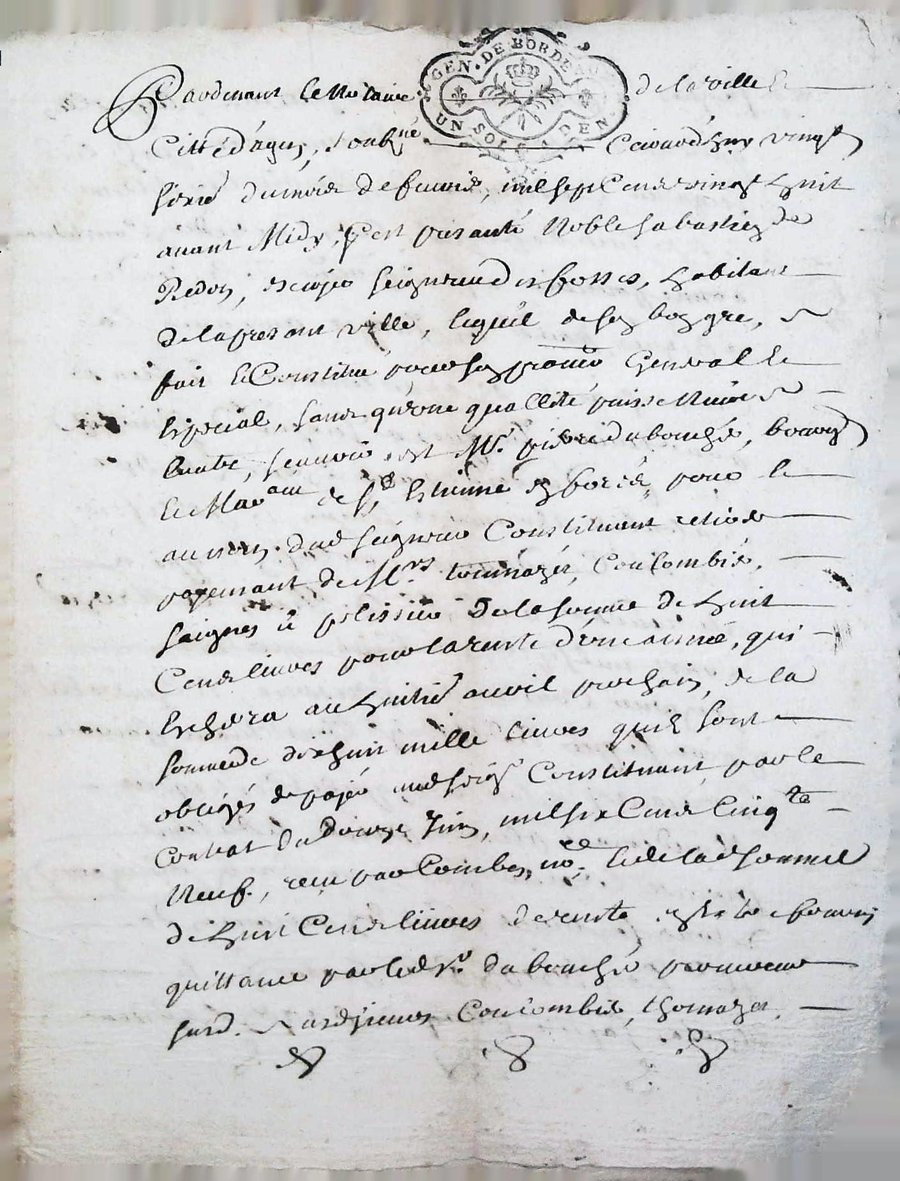 GEN · DE BORDE
UN SOL DEN
Pardevant le Notaire de la ville &
Citté d'agen, soubne, Cejourd'huy vingt
du mois de fevrier, mil sept Cens vingt huit
avant Midy, s'est presanté Noble sabastien de
Redon, escuyer seigneur des fosses, habitant
de la presant ville, lequel de son bon gre,
fait & Constitué pour son procur General &
special, sans qu'une quallité puisse Nuire a
lautre, scavoir est Mr pierre dubouché, bourg
de St Estienne en forés, pour &
au nom dud seigneur Constituant retirer
payemant de Mrs Coulombié,
de la somme de huit
Cens livres pour la rente d'une année, qui
Escherra au huitie avril prochain, de la
somme de dixhuit mille livres quils sont
obligés de payé aud seigr Constituant, par le
Contrat du douze Juin, mil six Cens Cinqte
Neuf, receu par Combes, nore & de lad somme
de huit Cens livres de rente fournir
quittance par led sr dubouché procureur
susd. Coulombié, thomazet.